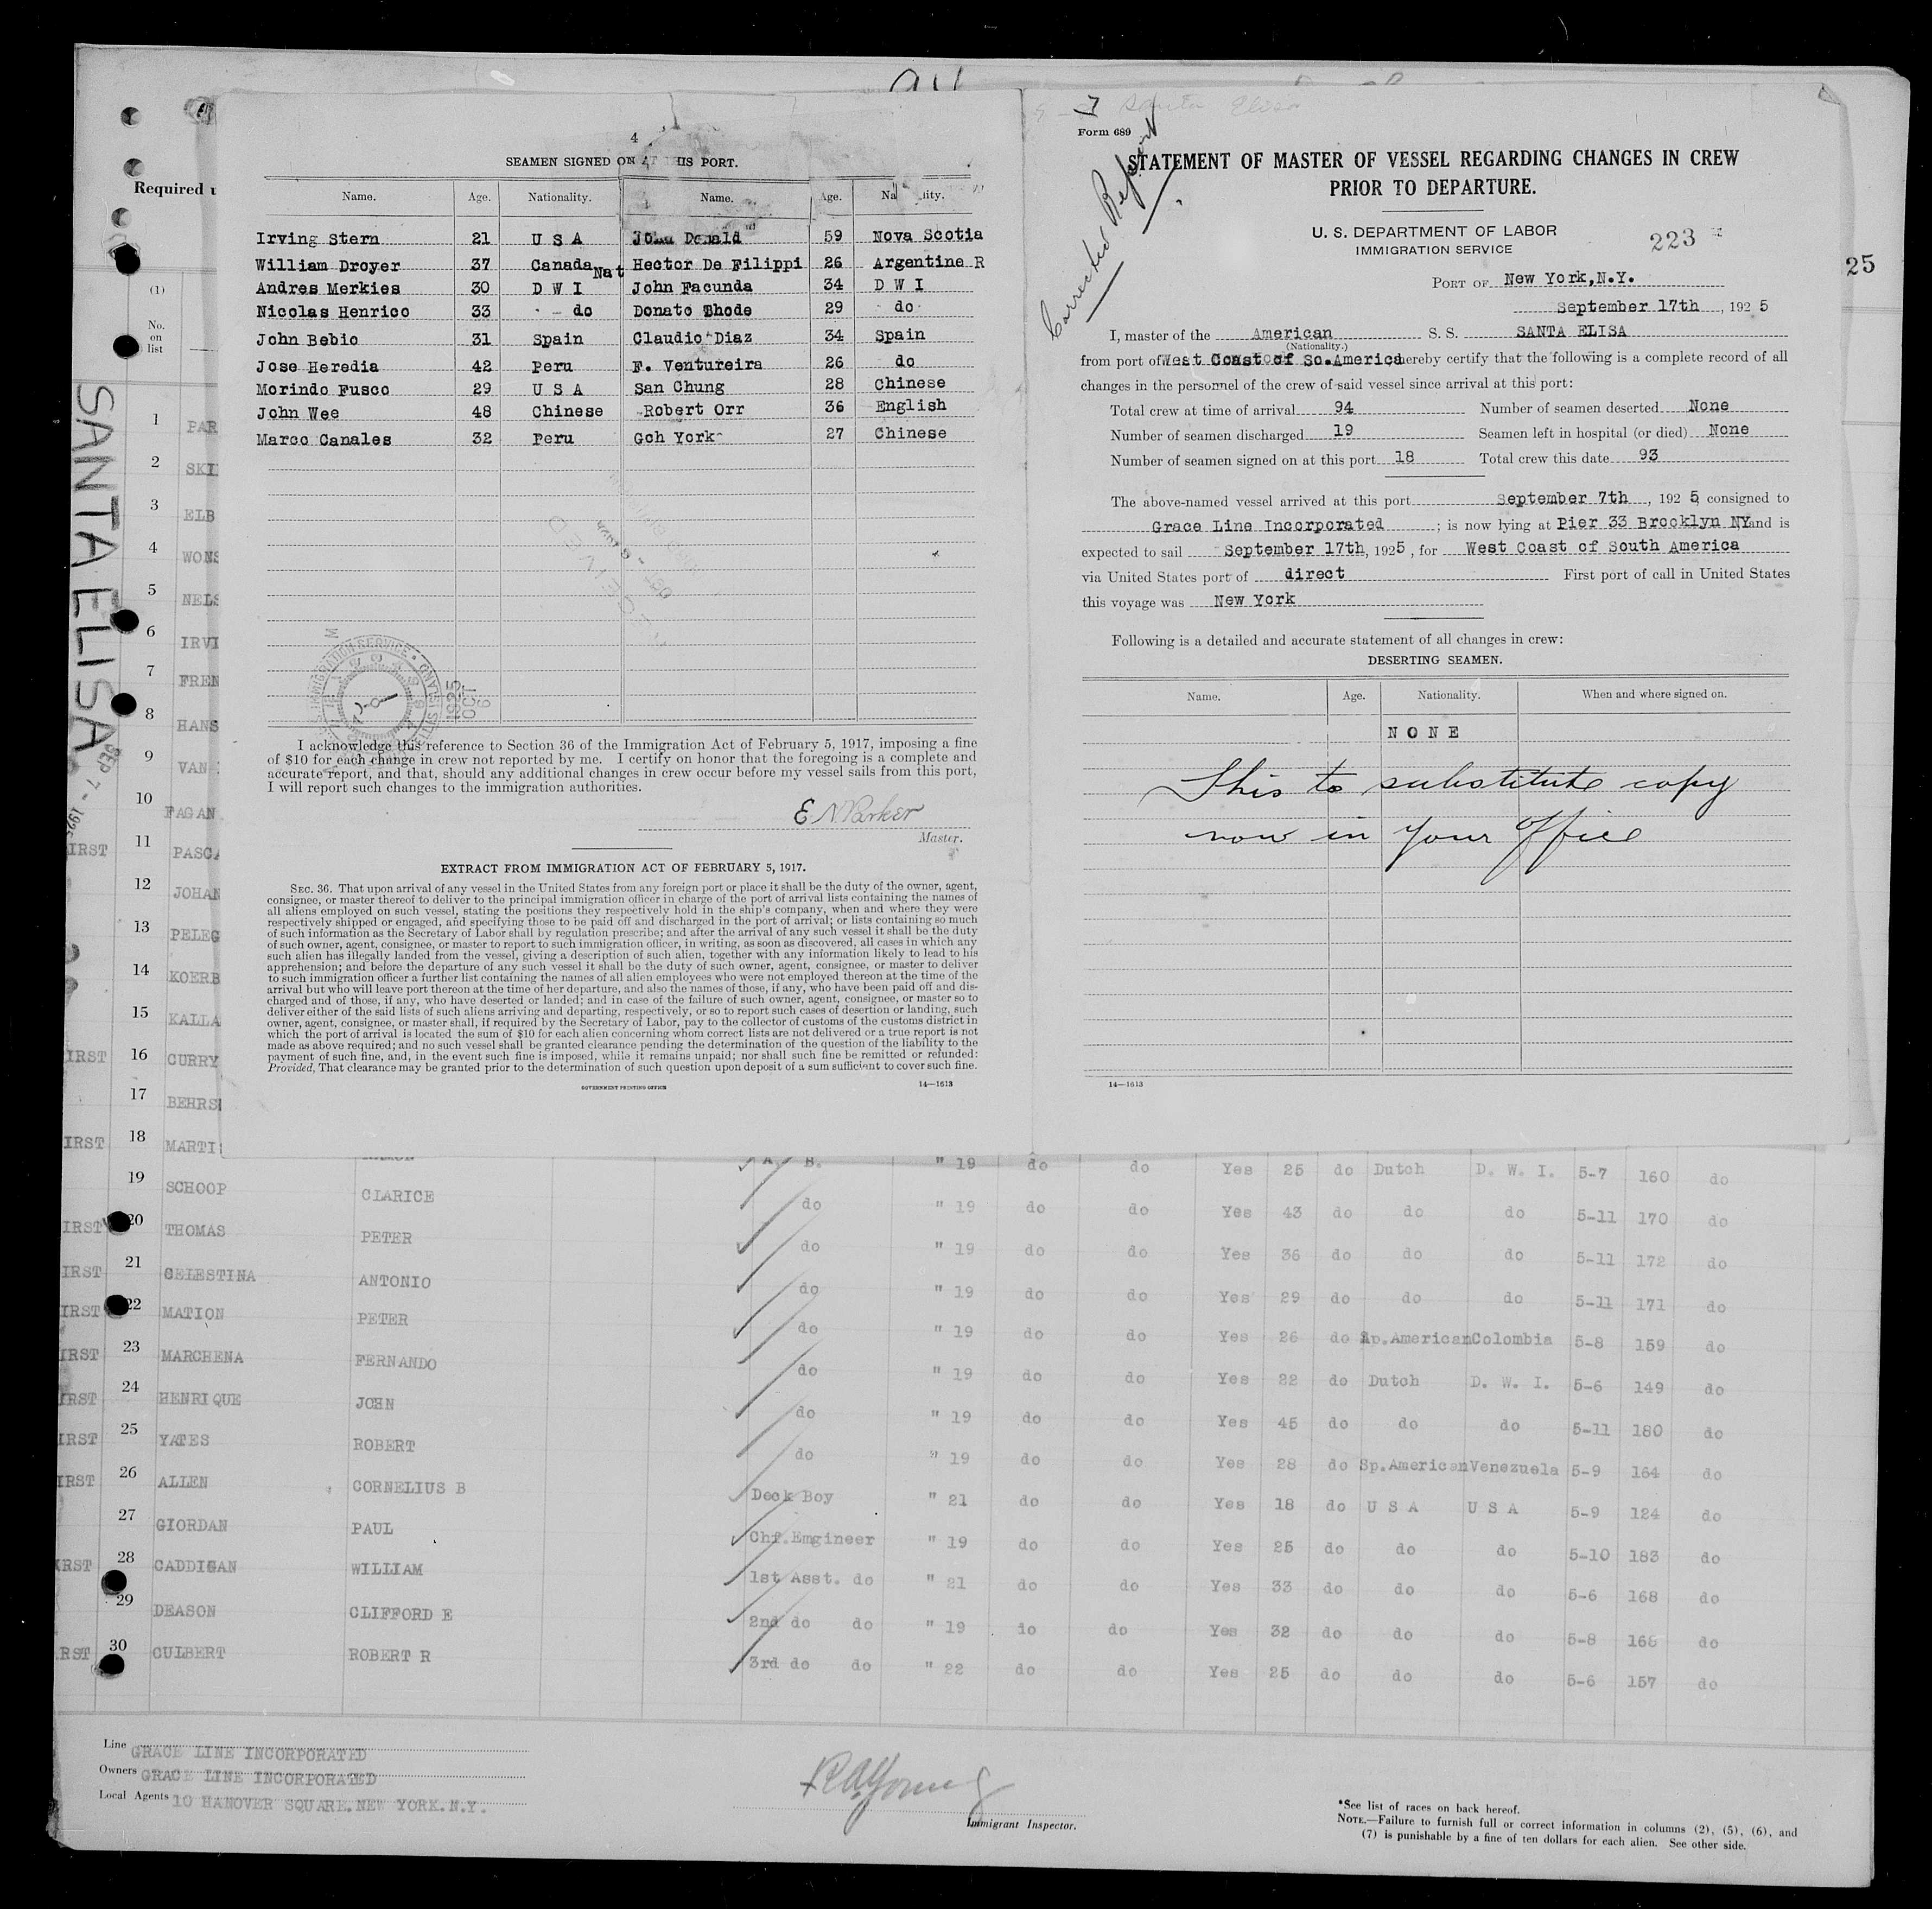 4
SEAMEN SIGNED ON AT THIS PORT.
Name. Age. Nationality. Name. Age. Nationality.
Irving Stern 21 U S A John Donald 59 Nova Scotia
William Droyer 37 Canada Nat Hector De Filippi 26 Argentine R
Andres Merkies 30 D W I John Facunda 34 D W I
Nicolas Henrico 33 do Donato Thode 29 do
John Bebio 31 Spain Claudio Diaz 34 Spain
Jose Heredia 42 Peru F. Ventureira 26 do
Morindo Fusco 29 U S A San Chung 28 Chinese
John Wee 48 Chinese Robert Orr 36 English
Marco Canales 32 Peru Goh York 27 Chinese
RECEIVED
IMMIGRATION SERVICE
1925 OCT 6
I acknowledge this reference to Section 36 of the Immigration Act of February 5, 1917, imposing a fine
of $10 for each change in crew not reported by me. I certify on honor that the foregoing is a complete and
accurate report, and that, should any additional changes in crew occur before my vessel sails from this port,
I will report such changes to the immigration authorities.
E N Parker
Master.
EXTRACT FROM IMMIGRATION ACT OF FEBRUARY 5, 1917.
SEC. 36. That upon arrival of any vessel in the United States from any foreign port or place it shall be the duty of the owner, agent,
consignee, or master thereof to deliver to the principal immigration officer in charge of the port of arrival lists containing the names of
all aliens employed on such vessel, stating the positions they respectively hold in the ship's company, when and where they were
respectively shipped or engaged, and specifying those to be paid off and discharged in the port of arrival; or lists containing so much
of such information as the Secretary of Labor shall by regulation prescribe; and after the arrival of any such vessel it shall be the duty
of such owner, agent, consignee, or master to report to such immigration officer, in writing, as soon as discovered, all cases in which any
such alien has illegally landed from the vessel, giving a description of such alien, together with any information likely to lead to his
apprehension; and before the departure of any such vessel it shall be the duty of such owner, agent, consignee, or master to deliver
to such immigration officer a further list containing the names of all alien employees who were not employed thereon at the time of the
arrival but who will leave port thereon at the time of her departure, and also the names of those, if any, who have been paid off and dis-
charged and of those, if any, who have deserted or landed; and in case of the failure of such owner, agent, consignee, or master so to
deliver either of the said lists of such aliens arriving and departing, respectively, or so to report such cases of desertion or landing, such
owner, agent, consignee, or master shall, if required by the Secretary of Labor, pay to the collector of customs of the customs district in
which the port of arrival is located the sum of $10 for each alien concerning whom correct lists are not delivered or a true report is not
made as above required; and no such vessel shall be granted clearance pending the determination of the question of the liability to the
payment of such fine, and, in the event such fine is imposed, while it remains unpaid; nor shall such fine be remitted or refunded:
Provided, That clearance may be granted prior to the determination of such question upon deposit of a sum sufficient to cover such fine.
GOVERNMENT PRINTING OFFICE 14—1613
Santa Elisa
Form 689
Corrected Report
STATEMENT OF MASTER OF VESSEL REGARDING CHANGES IN CREW
PRIOR TO DEPARTURE.
U. S. DEPARTMENT OF LABOR
IMMIGRATION SERVICE
223
PORT OF New York,N.Y.
September 17th, 1925
I, master of the American S. S. SANTA ELISA
(Nationality.)
from port of West Coast of So.America hereby certify that the following is a complete record of all
changes in the personnel of the crew of said vessel since arrival at this port:
Total crew at time of arrival 94 Number of seamen deserted None
Number of seamen discharged 19 Seamen left in hospital (or died) None
Number of seamen signed on at this port 18 Total crew this date 93
The above-named vessel arrived at this port September 7th, 1925, consigned to
Grace Line Incorporated; is now lying at Pier 33 Brooklyn NY and is
expected to sail September 17th, 1925, for West Coast of South America
via United States port of direct First port of call in United States
this voyage was New York
Following is a detailed and accurate statement of all changes in crew:
DESERTING SEAMEN.
Name. Age. Nationality. When and where signed on.
N O N E
This to substitute copy
now in your office
14—1613
25
Required u
(1)
No. on list
SANTA ELISA
SEP 7 - 192
1 PAR
2 SKI
3 ELB
4 WONS
5 NELS
6 IRVI
7 FREN
8 HANS
9 VAN
10 FAGAN
IRST 11 PASCA
12 JOHAN
13 PELEG
14 KOERB
15 KALLA
IRST 16 CURRY
17 BEHRS
IRST 18 MARTI A B. " 19 do do Yes 25 do Dutch D. W. I. 5-7 160 do
19 SCHOOP CLARICE do " 19 do do Yes 43 do do do 5-11 170 do
IRST 20 THOMAS PETER do " 19 do do Yes 36 do do do 5-11 172 do
IRST 21 CELESTINA ANTONIO do " 19 do do Yes 29 do do do 5-11 171 do
IRST 22 MATION PETER do " 19 do do Yes 26 do Sp.American Colombia 5-8 159 do
IRST 23 MARCHENA FERNANDO do " 19 do do Yes 22 do Dutch D. W. I. 5-6 149 do
IRST 24 HENRIQUE JOHN do " 19 do do Yes 45 do do do 5-11 180 do
IRST 25 YATES ROBERT do " 19 do do Yes 28 do Sp.American Venezuela 5-9 164 do
IRST 26 ALLEN CORNELIUS B Deck Boy " 21 do do Yes 18 do U S A U S A 5-9 124 do
27 GIORDAN PAUL Chf.Emgineer " 19 do do Yes 25 do do do 5-10 183 do
IRST 28 CADDIGAN WILLIAM 1st Asst. do " 21 do do Yes 33 do do do 5-6 168 do
29 DEASON CLIFFORD E 2nd do do " 19 do do Yes 32 do do do 5-8 166 do
RST 30 CULBERT ROBERT R 3rd do do " 22 do do Yes 25 do do do 5-6 157 do
Line GRACE LINE INCORPORATED
Owners GRACE LINE INCORPORATED
Local Agents 10 HANOVER SQUARE.NEW YORK.N.Y.
R A Young
Immigrant Inspector.
*See list of races on back hereof.
NOTE.—Failure to furnish full or correct information in columns (2), (5), (6), and
(7) is punishable by a fine of ten dollars for each alien. See other side.